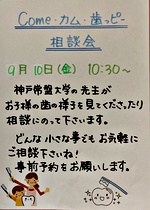 Come・カム・歯っピー
相談会
9月10日(金) 10:30～
神戸常盤大学の先生が
お子様の歯の様子を見てくださったり
相談にのって下さいます。
どんな小さな事でもお気軽に
ご相談下さいね!
事前予約をお願いします。